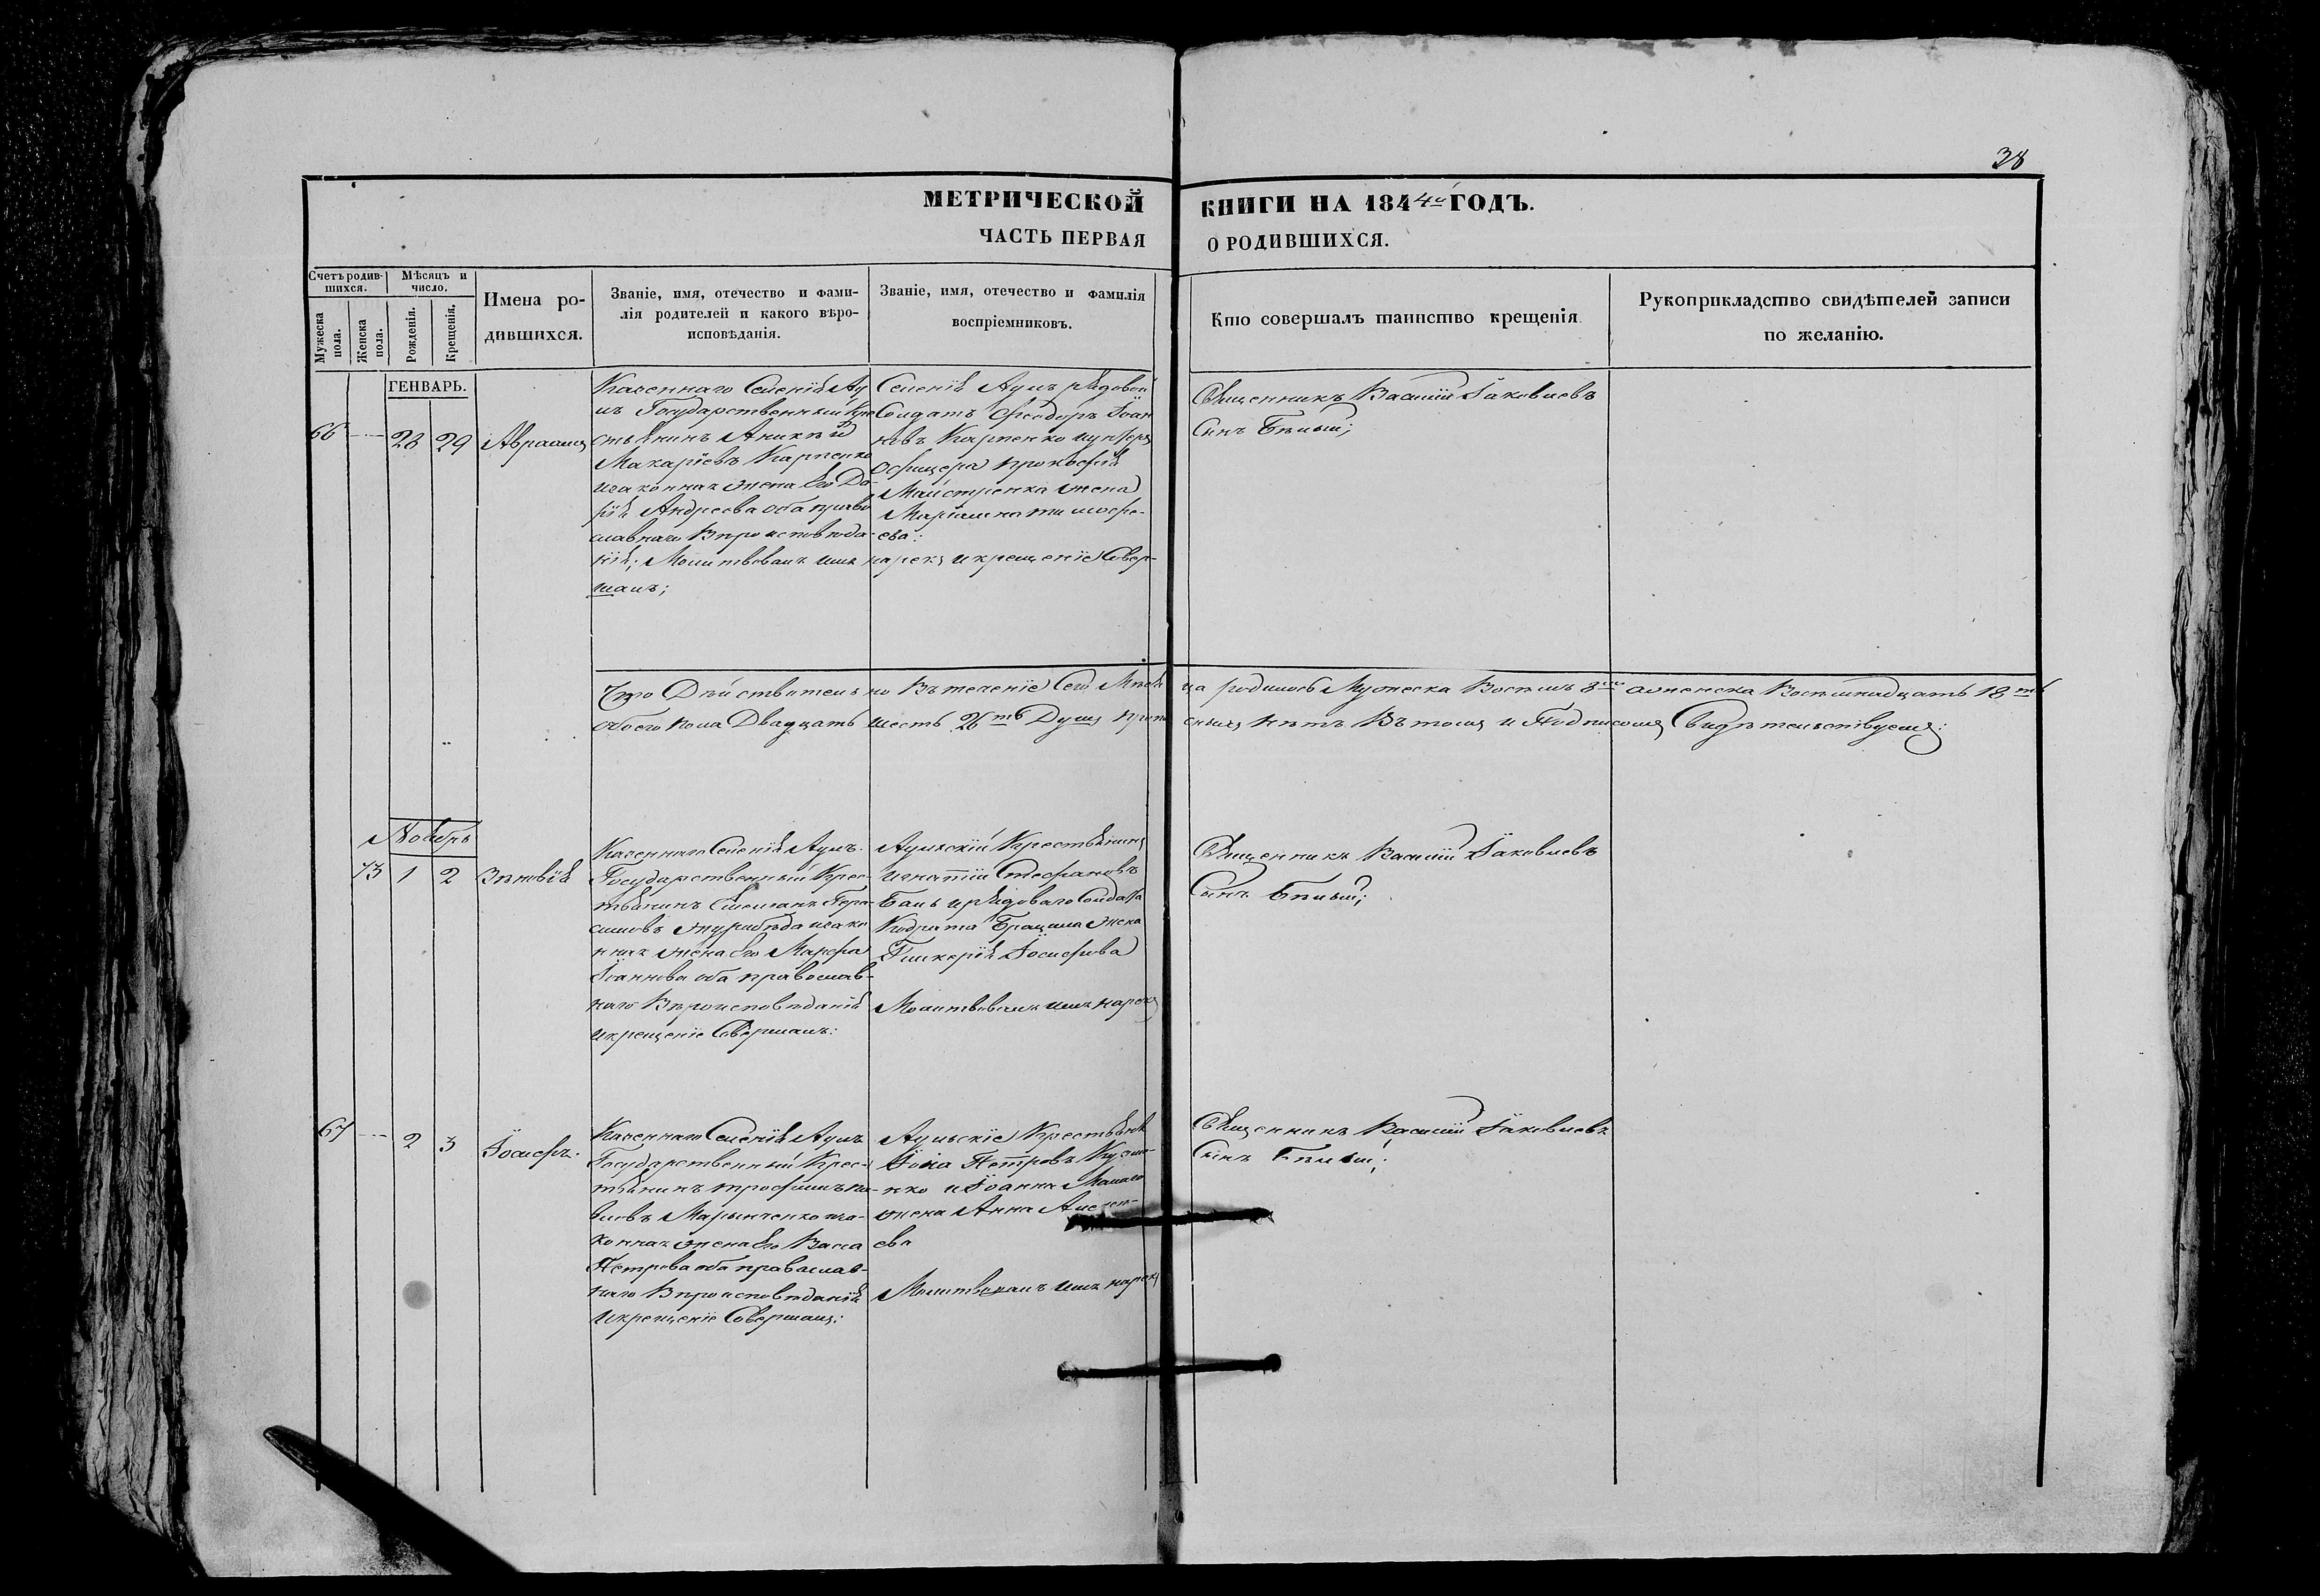 38
МЕТРИЧЕСКОЙ КНИГИ НА 1844й ГОДЪ.
ЧАСТЬ ПЕРВАЯ О РОДИВШИХСЯ.
Счетъ родив-
шихся.
Мужеска
пола.
Женска
пола.
Мѣсяцъ и
число.
Рожденія.
Крещенія.
Имена ро-
дившихся.
Званіе, имя, отечество и фами-
лія родителей и какого вѣро-
исповѣданія.
Званіе, имя, отечество и фамилія
воспріемниковъ.
Кто совершалъ таинство крещенія
Рукоприкладство свидѣтелей записи
по желанію.
ГЕНВАРЬ.
66 28 29 Авраамъ
Казеннаго Селенія Ау
лъ Государственный Кре
стьянинъ
Макаріевъ Карпенко
изаконная жена его Да
рія Андреева оба право
славнаго Вѣроисповѣда-
нія; Молитвовалъ имя нарекъ и крещеніе Совер-
шалъ;
Селенія Аулъ рядовой
Солдатъ Феодоръ Іоан
новъ Карпенко иунтеръ
Офицера Прокофія
Майстренка жена
Маріамна Тимофе-
ева:
Священникъ Василій Іаковлевъ
Сынъ Бѣлый;
Что Дѣйствительно Въ теченіе Сего Мѣсяца родилось Мужеска Восемь 8мь аженска Восемнадцать 18ть
обоего пола Двадцать шесть 26ть Душъ пропи сныхъ нѣтъ Въ томъ и Подписомъ Свидѣтельствуемъ:
Ноябрь
73 1 2 Зѣновія
Казеннаго Селенія Аулъ
Государственный Крес-
тьянинъ Гера-
симовъ изако
нная жена его Марфа
Іоаннова оба православ-
наго Вѣроисповѣданія
икрещеніе Совершалъ:
Аульскій Крестьянинъ
Игнатій Стефановъ
Бань ирядоваго Солдата
Кодрата жена
Гликерія Іосифова
Молитвовалъ имя нарекъ
Священникъ Василій Іаковлевъ
Сынъ Бѣлый;
67 2 3 Іосифъ.
Казеннаго Селенія Аулъ
Государственный Крес-
тьянинъ Трофимъ Па-
вловъ Марынченко иза-
конная жена его Васса
Петрова оба православ-
наго Вѣроисповѣданія
Икрещеніе Совершалъ:
Аульскіе Крестьяне
Іона Петровъ Кузме-
нко иІоанна
жена Анна Алексе-
ева
Молитвовалъ имя нарекъ
Священникъ Василій Іаковлевъ
Сынъ Бѣлый;